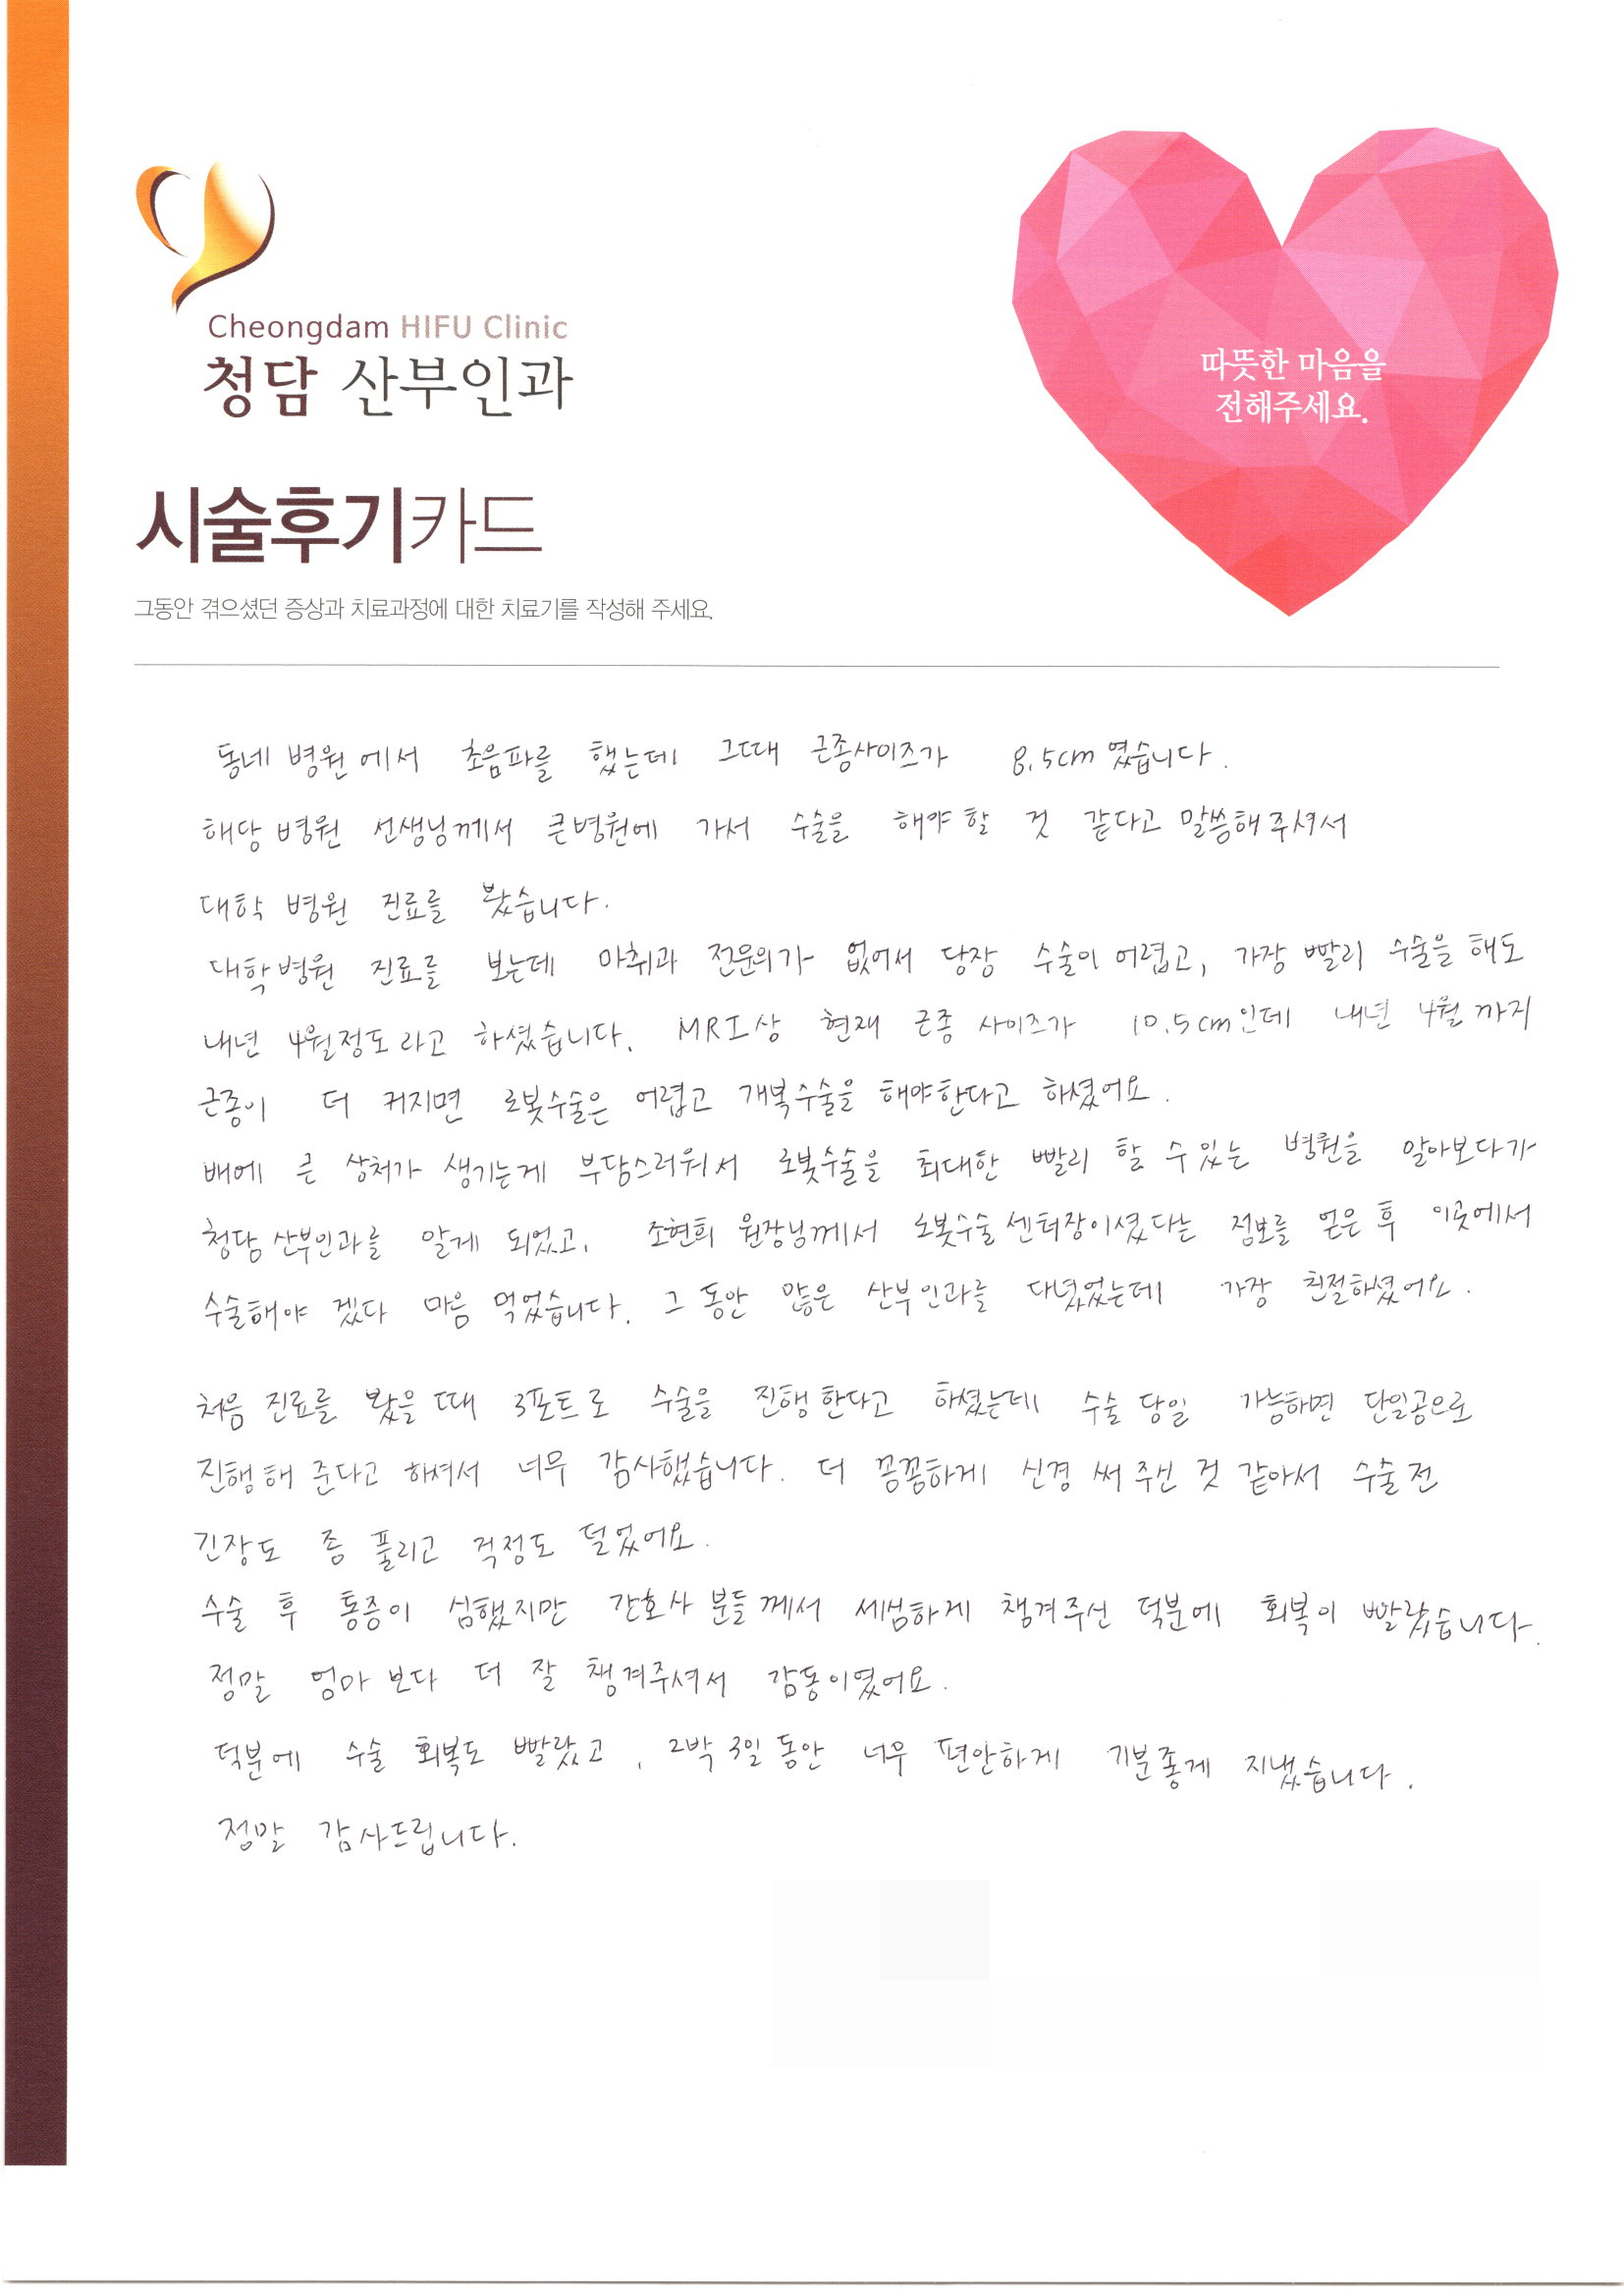 Cheongdam HIFU Clinic
청담 산부인과
따뜻한 마음을
전해주세요.
시술후기카드
그동안 겪으셨던 증상과 치료과정에 대한 치료기를 작성해 주세요.
동네 병원에서 초음파를 했는데 그때 근종사이즈가 8.5cm 였습니다.
해당 병원 선생님께서 큰병원에 가서 수술을 해야 할 것 같다고 말씀해주셔서
대학 병원 진료를 봤습니다.
대학병원 진료를 보는데 마취과 전문의가 없어서 당장 수술이 어렵고, 가장 빨리 수술을 해도
내년 4월정도라고 하셨습니다. MRI상 현재 근종 사이즈가 10.5cm인데 내년 4월까지
근종이 더 커지면 로봇수술은 어렵고 개복수술을 해야한다고 하셨어요.
배에 큰 상처가 생기는게 부담스러워서 로봇수술을 최대한 빨리 할 수 있는 병원을 알아보다가
청담산부인과를 알게 되었고, 조현희 원장님께서 로봇수술센터장이셨다는 정보를 얻은 후 이곳에서
수술해야 겠다 마음 먹었습니다. 그 동안 많은 산부인과를 다녔었는데 가장 친절하셨어요.
처음 진료를 봤을 때 3포트로 수술을 진행한다고 하셨는데 수술 당일 가능하면 단일공으로
진행해 준다고 하셔서 너무 감사했습니다. 더 꼼꼼하게 신경 써 주신 것 같아서 수술 전
긴장도 좀 풀리고 걱정도 덜었어요.
수술 후 통증이 심했지만 간호사 분들께서 세심하게 챙겨주신 덕분에 회복이 빨랐습니다.
정말 엄마 보다 더 잘 챙겨주셔서 감동이였어요.
덕분에 수술 회복도 빨랐고, 2박 3일 동안 너무 편안하게 기분좋게 지냈습니다.
정말 감사드립니다.